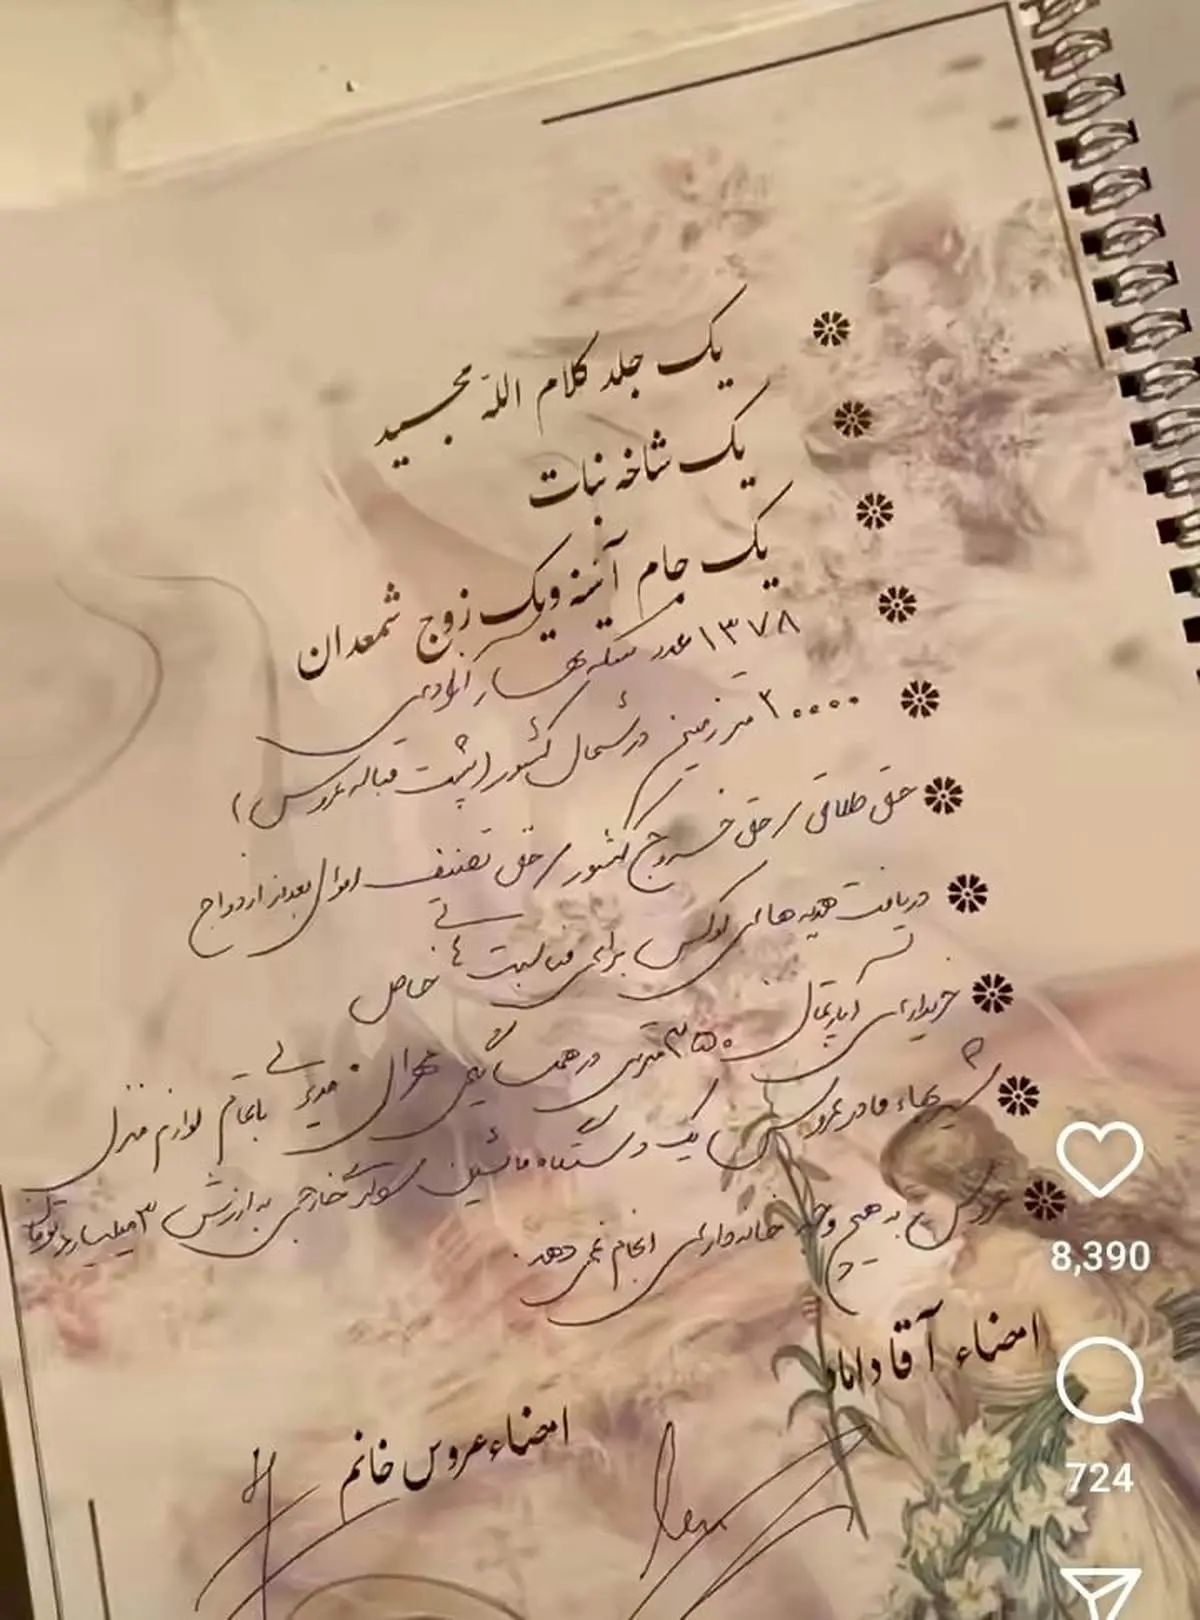 یک جلد کلام اللّه مجید
یک شاخه نبات
یک جام آئینه و یک زوج شمعدان
۱۳۷۸ عدد سکه بهار آزادی
۲۰۰۰۰ متر زمین در شمال کشور (پشت قباله عروس)
حق طلاق / حق خروج کشور / حق تصنیف اموال بعد از ازدواج
دریافت هدیه های لوکس برای مناسبت های خاص
خریداری آپارتمان ۳۵۰ متری در همسایگی تهران با تمام لوازم منزل
شیربهاء مادر عروس یک دستگاه ماشین سوار خارجی به ارزش ۳ میلیارد تومان
عروس به هیچ وجه خانه داری انجام نمی دهد.
امضاء آقا داماد
امضاء عروس خانم
8,390
724